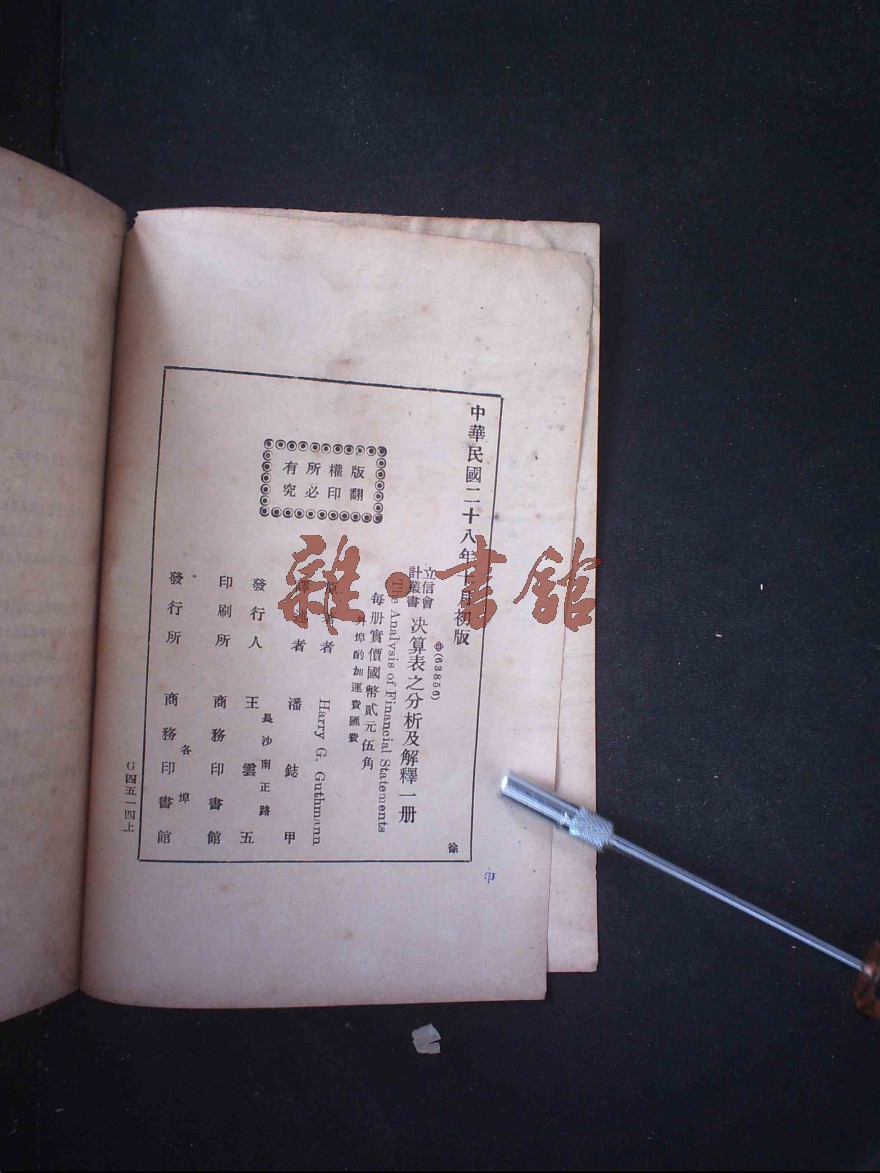 中華民國二十八年十月初版
㊥(63856)
立信會計叢書 決算表之分析及解釋一册
The Analysis of Financial Statements
每册實價國幣貳元伍角
外埠酌加運費匯費
原著者 Harry G. Guthmann
譯述者 潘鋕甲
發行人 王雲五
長沙南正路
印刷所 商務印書館
發行所 商務印書館
各埠
版權所有
翻印必究
徐
G四五一四上
雜·書館